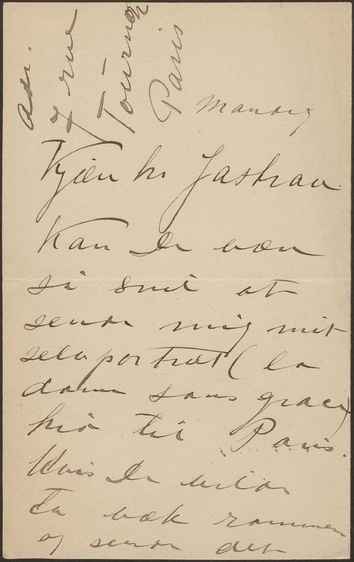 Adr.
7 rue
Tournon
Paris
Mandag
Kjære hr Jastrau
Kan De være
så snil at
sende mig mit
selvportræt (la
dame sans grace)
hid til Paris.
Hvis De vilde
ta væk rammen
og sende det